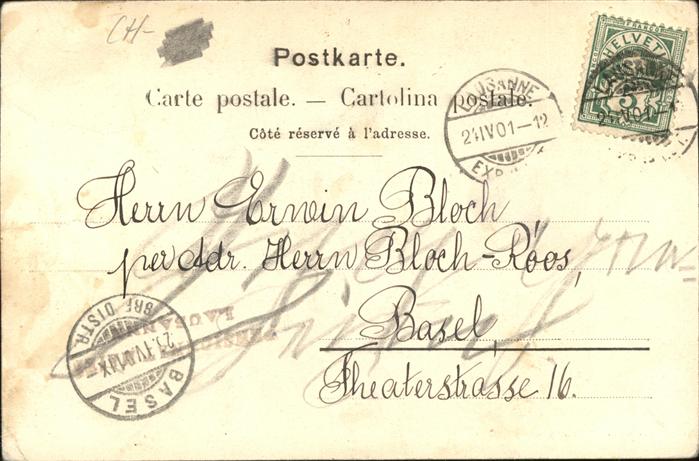 CH-
Postkarte.
Carte postale. — Cartolina postale.
Côté réservé à l'adresse.
LAUSANNE
24IV01-12
EXP
FRANCO
HELVETIA
5
LAUSANNE
24.IV.01
Herrn Erwin Bloch
per Adr. Herrn Bloch-Roos,
Basel,
Theaterstrasse 16.
LAUSANNE
BASEL
BRF. DISTR.